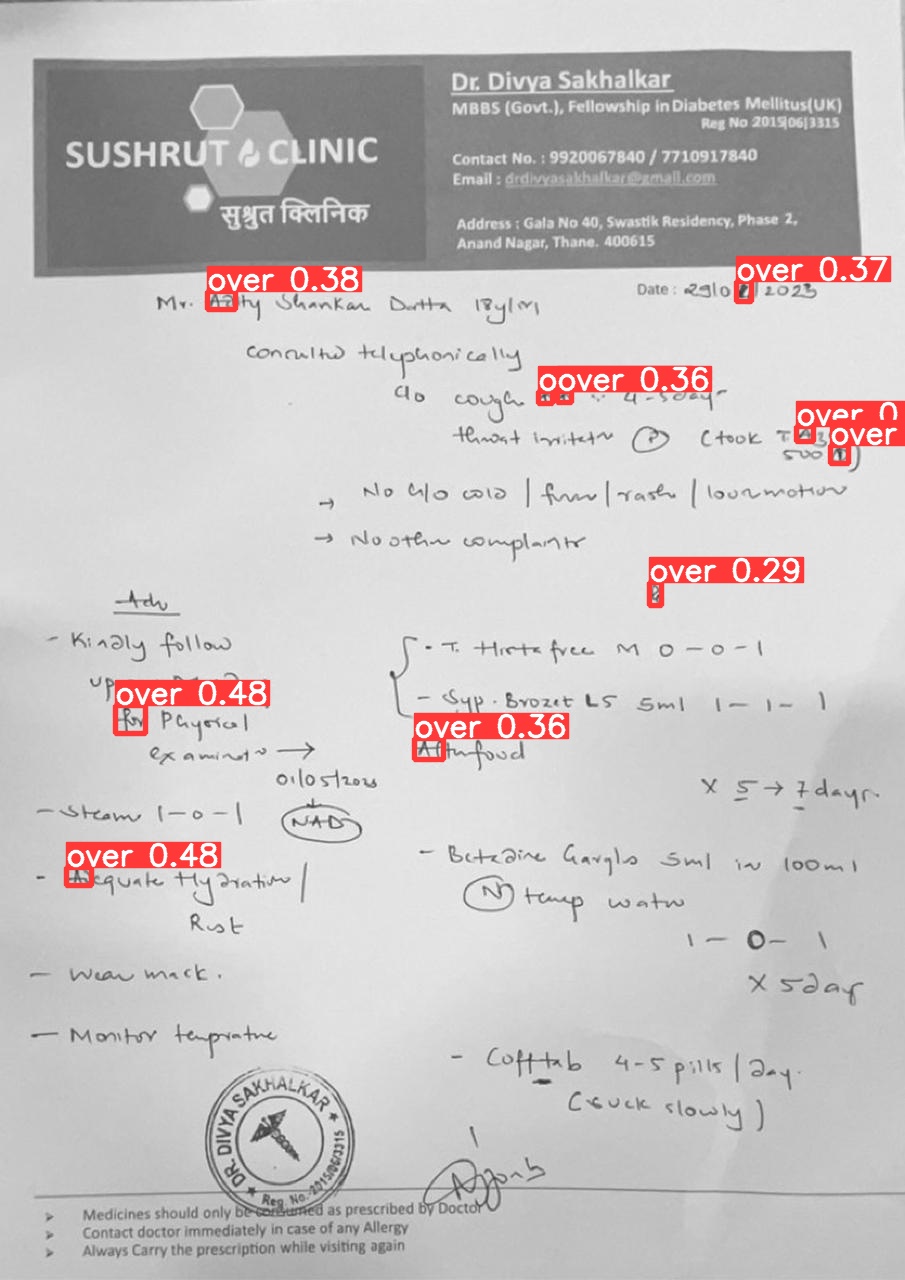 SUSHRUT CLINIC
सुश्रुत क्लिनिक
Dr. Divya Sakhalkar
MBBS (Govt.), Fellowship in Diabetes Mellitus(UK)
Reg No 2015|06|3315
Contact No. : 9920067840 / 7710917840
Email : drdivyasakhalkar@gmail.com
Address : Gala No 40, Swastik Residency, Phase 2,
Anand Nagar, Thane. 400615
over 0.38
over 0.37
Date : 29/0 /2023
Mr. Shankar Dutta 18y/M
consulted telephonically
over 0.36
c/o cough 4-5 day
over 0
over
throat irritatn (P) (took T.
500
→ No c/o cold / fever / rash / loosemotion
→ No other complaints
over 0.29
Adv
- Kindly follow
up
over 0.48
for Physical
examinatn →
01/05/2023
NAD
- Steam 1-0-1
over 0.48
- Adequate Hydration /
Rest
- Wear mask.
- Monitor temprature
- T. Histafree M 0-0-1
- Syp. Brozet LS 5ml 1-1-1
over 0.36
After food
X 5 → 7 days.
- Betadine Gargles 5ml in 100ml
(N) temp water
1-0-1
X 5 day
- Cofftab 4-5 pills / day.
(suck slowly)
DR. DIVYA SAKHALKAR
Reg. No.-2015/06/3315
Medicines should only be consumed as prescribed by Doctor
Contact doctor immediately in case of any Allergy
Always Carry the prescription while visiting again